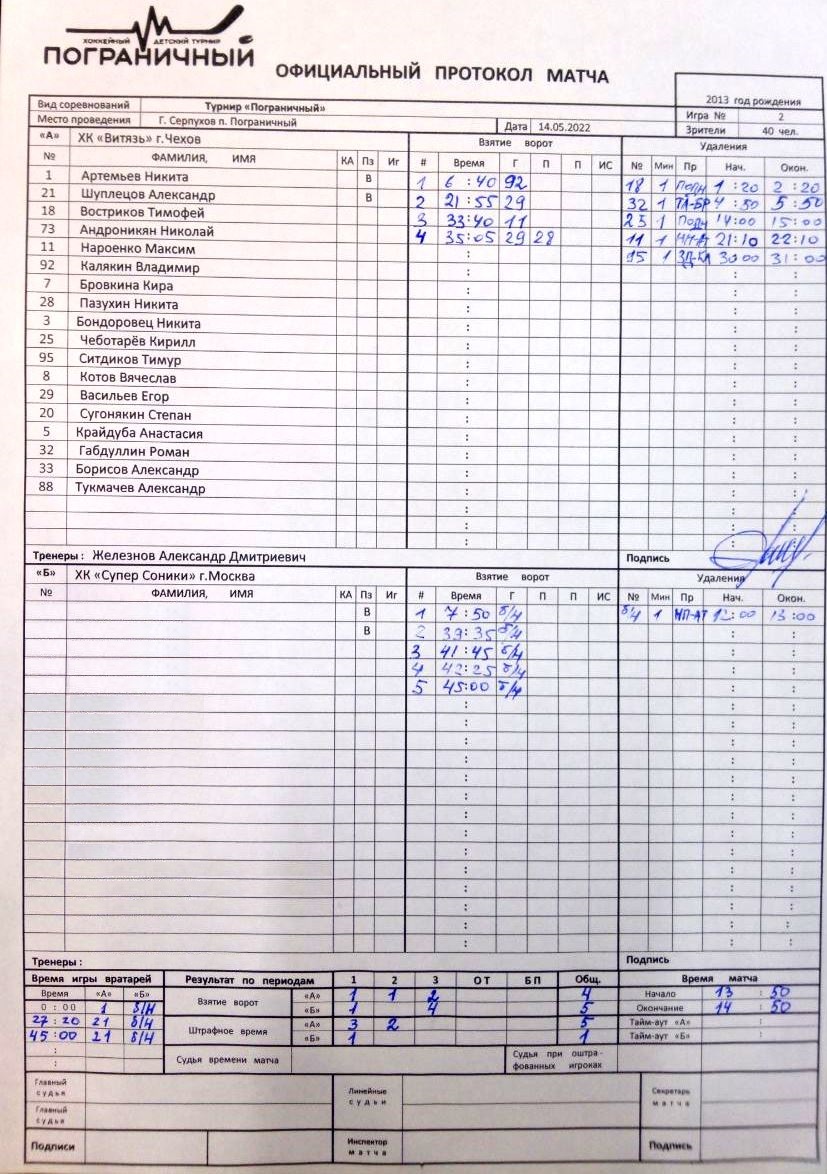 ХОККЕЙНЫЙ ДЕТСКИЙ ТУРНИР
ПОГРАНИЧНЫЙ
ОФИЦИАЛЬНЫЙ ПРОТОКОЛ МАТЧА
2013 год рождения
Вид соревнований Турнир «Пограничный» Игра № 2
Место проведения Г. Серпухов п. Пограничный Дата 14.05.2022 Зрители 40 чел.
«А» ХК «Витязь» г.Чехов Взятие ворот Удаления
№ ФАМИЛИЯ, ИМЯ КА Пз Иг # Время Г П П ИС № Мин Пр Нач. Окон.
1 Артемьев Никита В 1 6 :40 92 18 1 Подн 1 :20 2 :20
21 Шуплецов Александр В 2 21 :55 29 32 1 4 :50 5 :50
18 Востриков Тимофей 3 33:40 11 25 1 Подн 14:00 15:00
73 Андроникян Николай 4 35:05 29 28 11 1 21:10 22:10
11 Нароенко Максим : 95 1 30:00 31:00
92 Калякин Владимир
7 Бровкина Кира
28 Пазухин Никита
3 Бондоровец Никита
25 Чеботарёв Кирилл
95 Ситдиков Тимур
8 Котов Вячеслав
29 Васильев Егор
20 Сугонякин Степан
5 Крайдуба Анастасия
32 Габдуллин Роман
33 Борисов Александр
88 Тукмачев Александр
Тренеры : Железнов Александр Дмитриевич Подпись
«Б» ХК «Супер Соники» г.Москва Взятие ворот Удаления
№ ФАМИЛИЯ, ИМЯ КА Пз Иг # Время Г П П ИС № Мин Пр Нач. Окон.
В 1 7 :50 б/н б/н 1 НП-АТ 12:00 13:00
В 2 39:35 б/н
3 41:45 б/н
4 42:25 б/н
5 45:00 б/н
Тренеры : Подпись
Время игры вратарей Результат по периодам 1 2 3 ОТ БП Общ. Время матча
Время «А» «Б» Взятие ворот «А» 1 1 2 4 Начало 13 : 50
0 : 00 1 б/н «Б» 1 4 5 Окончание 14 : 50
27 : 20 21 б/н Штрафное время «А» 3 2 5 Тайм-аут «А» :
45 : 00 21 б/н «Б» 1 1 Тайм-аут «Б» :
Судья времени матча Судья при оштрафованных игроках
Главный судья Линейные судьи Секретарь матча
Главный судья
Подписи Инспектор матча Подпись